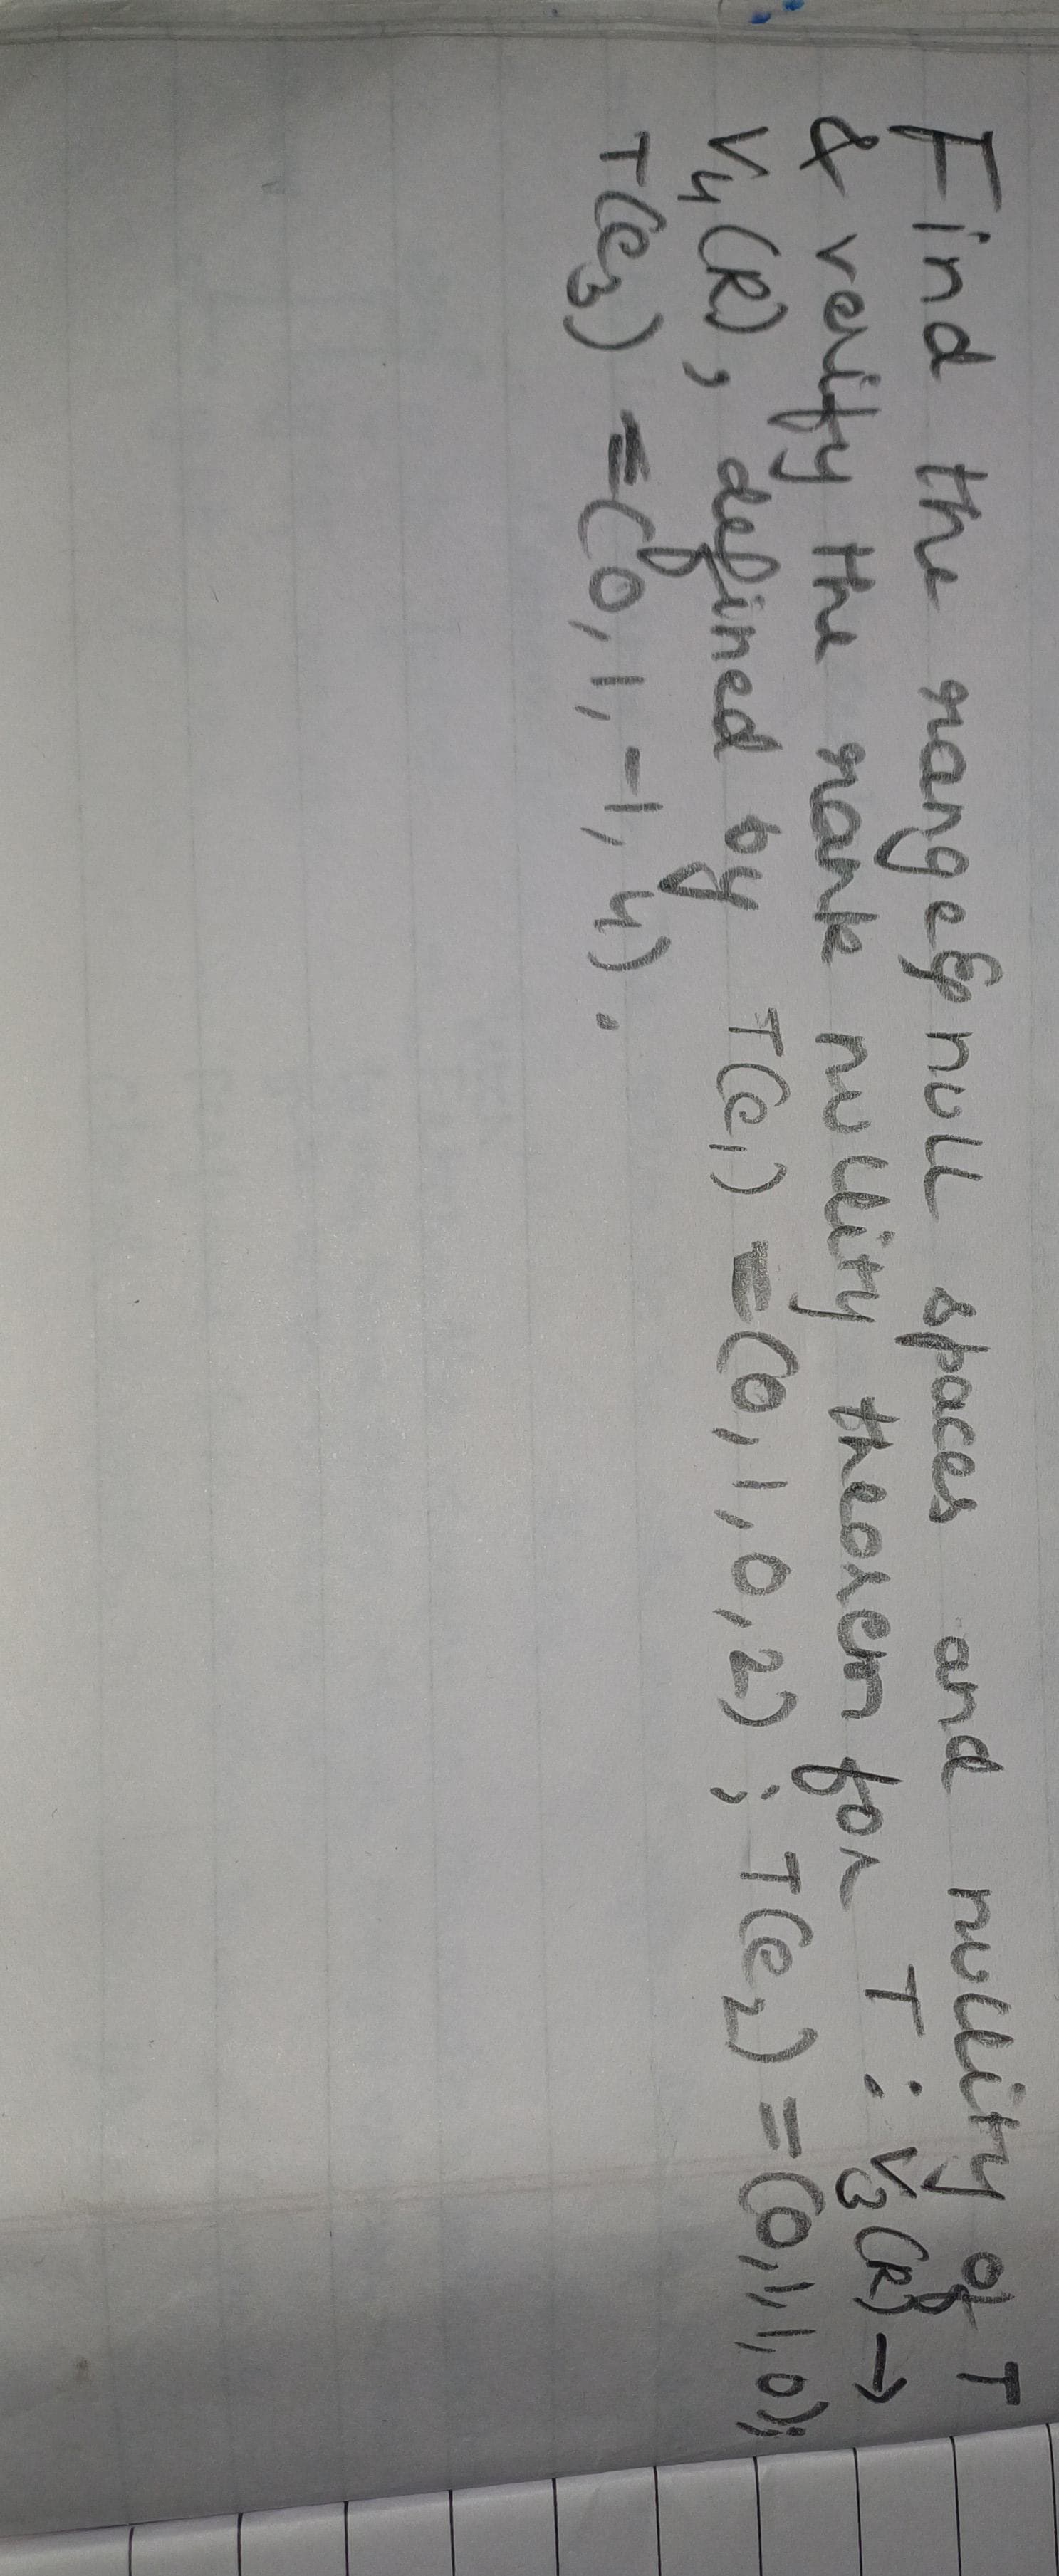 Find the range & null spaces and nullity of T
& verify the rank nullity theorem for T : V₃(R) →
V₄(R), defined by T(e₁) = (0, 1, 0, 2) ; T(e₂) = (0, 1, 1, 0);
T(e₃) = (0, 1, -1, 4) .